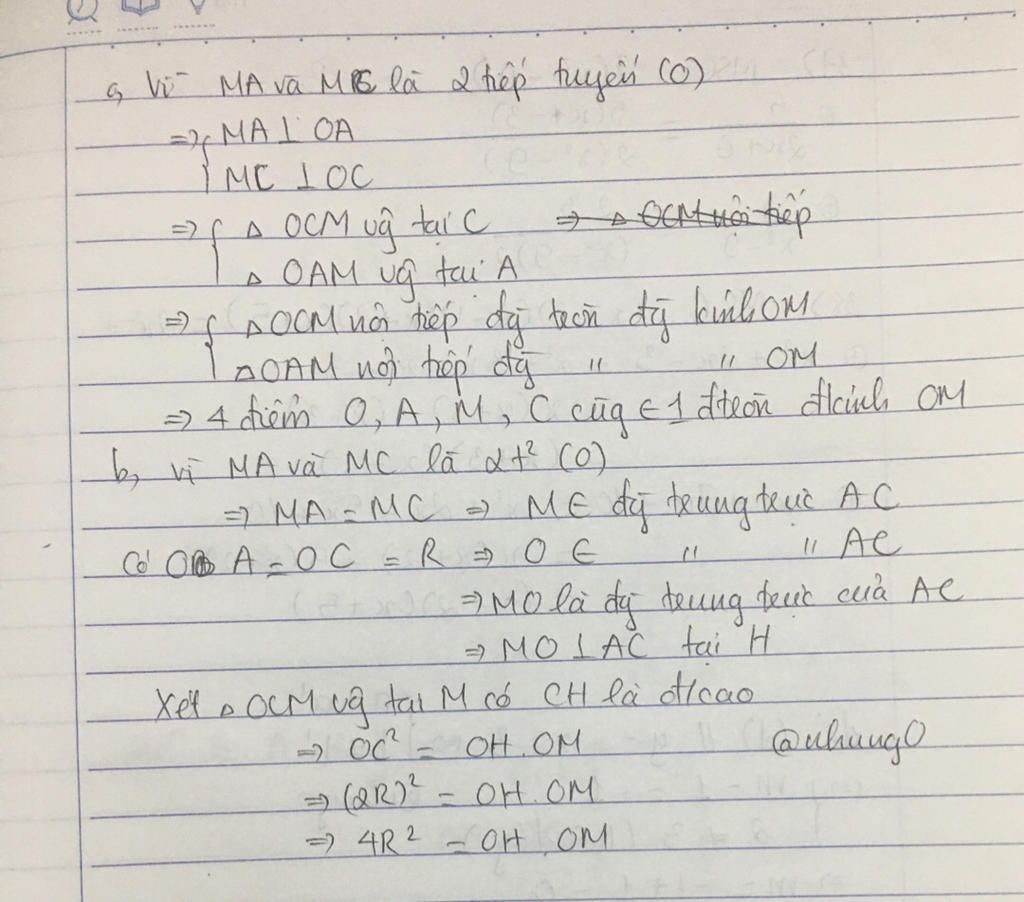 a, Vì MA và MC là 2 tiếp tuyến (O)
=> { MA ⊥ OA
MC ⊥ OC
=> { Δ OCM vg̃ tại C => Δ OCM nội tiếp
Δ OAM vg̃ tại A
=> { Δ OCM nội tiếp đg̃ tròn đg̃ kính OM
Δ OAM nội tiếp đg̃ " " OM
=> 4 điểm O, A, M, C cùg ∈ 1 đtròn đkính OM
b, vì MA và MC là 2t² (O)
=> MA = MC => M ∈ đg̃ trung trực AC
Có OA = OC = R => O ∈ " " AC
=> MO là đg̃ trung trực của AC
=> MO ⊥ AC tại H
Xét Δ OCM vg̃ tại M có CH là đ/cao
=> OC² = OH.OM @nhung0
=> (2R)² = OH.OM
=> 4R² = OH.OM